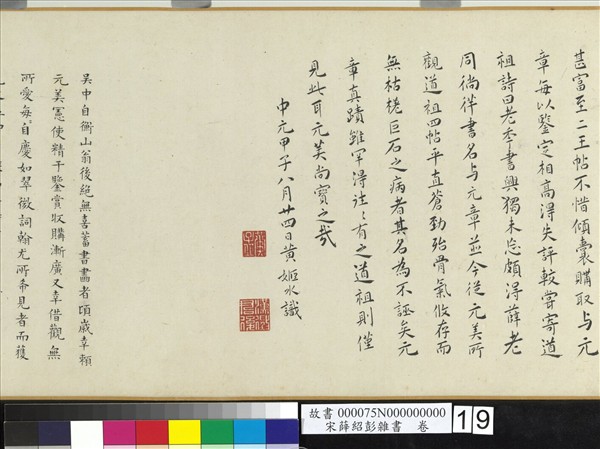 甚富至二王帖不惜傾囊購取与元
章每以鑒定相高得失評較嘗寄道
祖詩曰老來書興獨未忘頗得薛老
同徜徉書名与元章並今從元美所
觀道祖四帖平直蒼勁殆骨氣攸存而
無枯槎巨石之病者其名為不誣矣元
章真蹟雖罕得往〻有之道祖則僅
見此耳元美尚寶之哉
中元甲子八月廿四日黃姬水識
吳中自衡山翁後絕無喜蓄書畫者頃歲幸賴
元美憲使精于鑒賞收購漸廣又幸借觀無
所愛每自慶如翠微詞翰尤所希見者而獲
故書 000075N000000000
宋薛紹彭雜書 卷
19